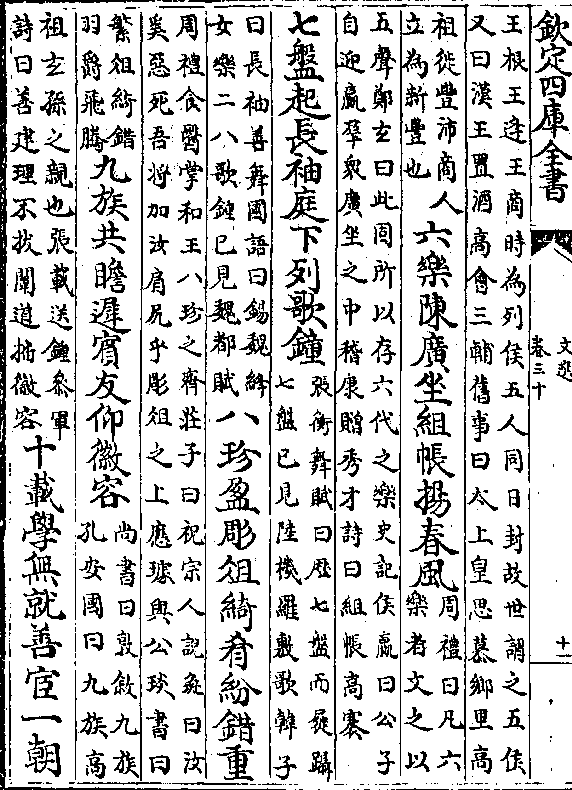 欽定四庫全書
文選
卷三十
十一
王根王逢王商時為列侯五人同日封故世謂之五侯
又曰漢王置酒高會三輔舊事曰太上皇思慕鄉里高
祖徙豐沛商人
立為新豐也
六樂陳廣坐組帳揚春風
周禮曰凡六
樂者文之以
五聲鄭玄曰此周所以存六代之樂史記侯嬴曰公子
自迎嬴羣衆廣坐之中稽康贈秀才詩曰組帳高褰
七盤起長袖庭下列歌鐘
張衡舞賦曰歷七盤而屣躡
七盤已見陸機羅敷歌韓子
曰長袖善舞國語曰錫魏絳
女樂二八歌鐘已見魏都賦
八珍盈彫俎綺肴紛錯重
周禮食醫掌和王八珍之齊莊子曰祝宗人說彘曰汝
奚惡死吾將加汝肩尻乎彫俎之上應璩與公琰書曰
繁俎綺錯
羽爵飛騰
九族共瞻遲賓友仰徽容
尚書曰敦敘九族
孔安國曰九族高
祖玄孫之親也張載送鍾參軍
詩曰善建理不拔闡道播徽容
十載學無就善宦一朝